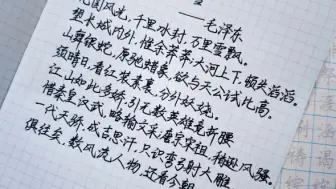 ——毛泽东
北国风光，千里冰封，万里雪飘。
望长城内外，惟余莽莽；大河上下，顿失滔滔。
山舞银蛇，原驰蜡象，欲与天公试比高。
须晴日，看红装素裹，分外妖娆。
江山如此多娇，引无数英雄竞折腰
惜秦皇汉武，略输文采；唐宗宋祖，稍逊风骚。
一代天骄，成吉思汗，只识弯弓射大雕
俱往矣，数风流人物，还看今朝